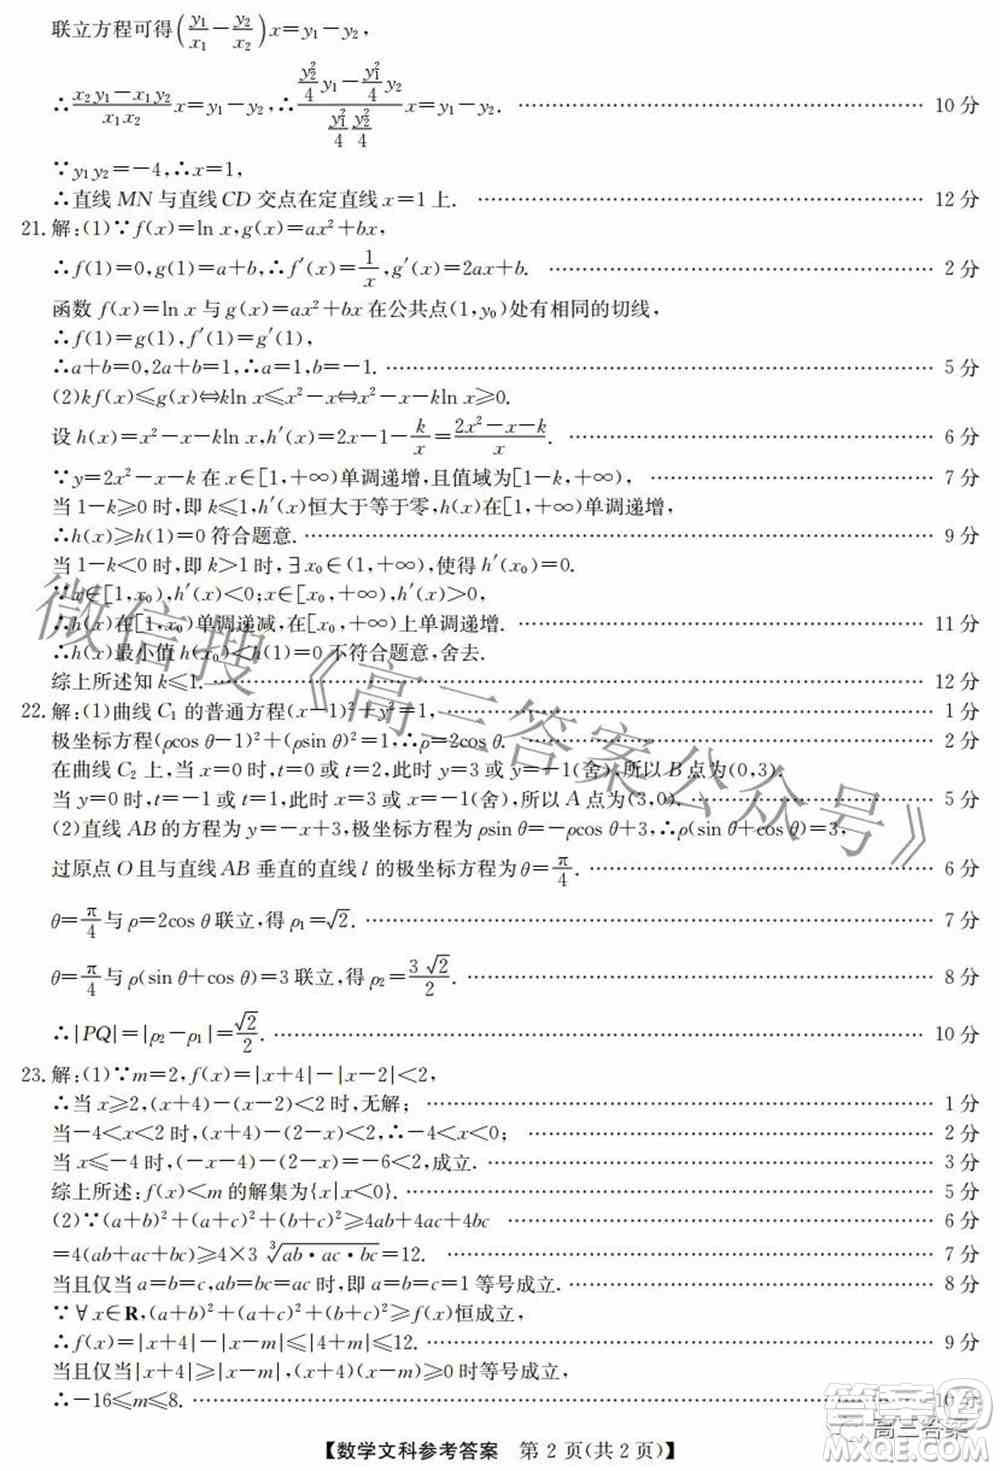 联立方程可得(y₁/x₁−y₂/x₂)x=y₁−y₂,
∴(x₂y₁−x₁y₂)/(x₁x₂) x=y₁−y₂,∴(y₂²/4 y₁−y₁²/4 y₂)/(y₁²/4 y₂²/4) x=y₁−y₂. ………… 10 分
∵y₁y₂=−4,∴x=1,
∴直线 MN 与直线 CD 交点在定直线 x=1 上. ………… 12 分
21.解:(1)∵f(x)=ln x,g(x)=ax²+bx,
∴f(1)=0,g(1)=a+b,∴f′(x)=1/x,g′(x)=2ax+b. ………… 2 分
函数 f(x)=ln x 与 g(x)=ax²+bx 在公共点(1,y₀)处有相同的切线,
∴f(1)=g(1),f′(1)=g′(1),
∴a+b=0,2a+b=1,∴a=1,b=−1. ………… 5 分
(2)kf(x)≤g(x)⇔kln x≤x²−x⇔x²−x−kln x≥0.
设 h(x)=x²−x−kln x,h′(x)=2x−1−k/x=(2x²−x−k)/x. ………… 6 分
∵y=2x²−x−k 在 x∈[1,+∞)单调递增,且值域为[1−k,+∞), ………… 7 分
当 1−k≥0 时,即 k≤1,h′(x)恒大于等于零,h(x)在[1,+∞)单调递增,
∴h(x)≥h(1)=0 符合题意. ………… 9 分
当 1−k<0 时,即 k>1 时,∃x₀∈(1,+∞),使得 h′(x₀)=0.
∵x∈[1,x₀),h′(x)<0;x∈[x₀,+∞),h′(x)>0,
∴h(x)在[1,x₀)单调递减,在[x₀,+∞)上单调递增. ………… 11 分
∴h(x)最小值 h(x₀)<h(1)=0 不符合题意,舍去.
综上所述知 k≤1. ………… 12 分
22.解:(1)曲线 C₁ 的普通方程(x−1)²+y²=1, ………… 1 分
极坐标方程(ρcos θ−1)²+(ρsin θ)²=1,∴ρ=2cos θ. ………… 2 分
在曲线 C₂ 上,当 x=0 时,t=0 或 t=2,此时 y=3 或 y=−1(舍),所以 B 点为(0,3).
当 y=0 时,t=−1 或 t=1,此时 x=3 或 x=−1(舍),所以 A 点为(3,0). ………… 5 分
(2)直线 AB 的方程为 y=−x+3,极坐标方程为 ρsin θ=−ρcos θ+3,∴ρ(sin θ+cos θ)=3,
过原点 O 且与直线 AB 垂直的直线 l 的极坐标方程为 θ=π/4. ………… 6 分
θ=π/4 与 ρ=2cos θ 联立,得 ρ₁=√2. ………… 7 分
θ=π/4 与 ρ(sin θ+cos θ)=3 联立,得 ρ₂=3√2/2. ………… 8 分
∴|PQ|=|ρ₂−ρ₁|=√2/2. ………… 10 分
23.解:(1)∵m=2,f(x)=|x+4|−|x−2|<2,
∴当 x≥2,(x+4)−(x−2)<2 时,无解; ………… 1 分
当−4<x<2 时,(x+4)−(2−x)<2,∴−4<x<0; ………… 2 分
当 x≤−4 时,(−x−4)−(2−x)=−6<2,成立. ………… 3 分
综上所述:f(x)<m 的解集为{x|x<0}. ………… 5 分
(2)∵(a+b)²+(a+c)²+(b+c)²≥4ab+4ac+4bc ………… 6 分
=4(ab+ac+bc)≥4×3∛(ab·ac·bc)=12. ………… 7 分
当且仅当 a=b=c,ab=bc=ac 时,即 a=b=c=1 等号成立. ………… 8 分
∵∀x∈R,(a+b)²+(a+c)²+(b+c)²≥f(x)恒成立,
∴f(x)=|x+4|−|x−m|≤|4+m|≤12. ………… 9 分
当且仅当|x+4|≥|x−m|,(x+4)(x−m)≥0 时等号成立,
∴−16≤m≤8. ………… 10 分
【数学文科参考答案 第 2 页(共 2 页)】
微信搜《高三答案公众号》
答案圈
高三答案
MXQE.COM